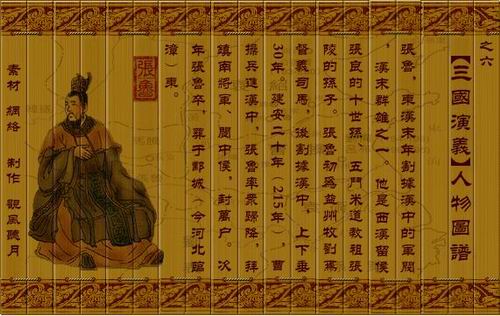 之六
【三國演義】人物圖譜
張魯，東漢末年割據漢中的軍閥
，漢末群雄之一。他是西漢留侯
張良的十世孫、五門米道教祖張
陵的孫子。張魯初為益州牧劉焉
督義司馬，後割據漢中，上下垂
30年。建安二十年（215年），曹
操兵進漢中，張魯率眾歸降，拜
鎮南將軍、閬中侯，封萬戶。次
年張魯卒，葬于鄴城（今河北臨
漳）東。
張魯
素材 網絡 制作 觀風聽月